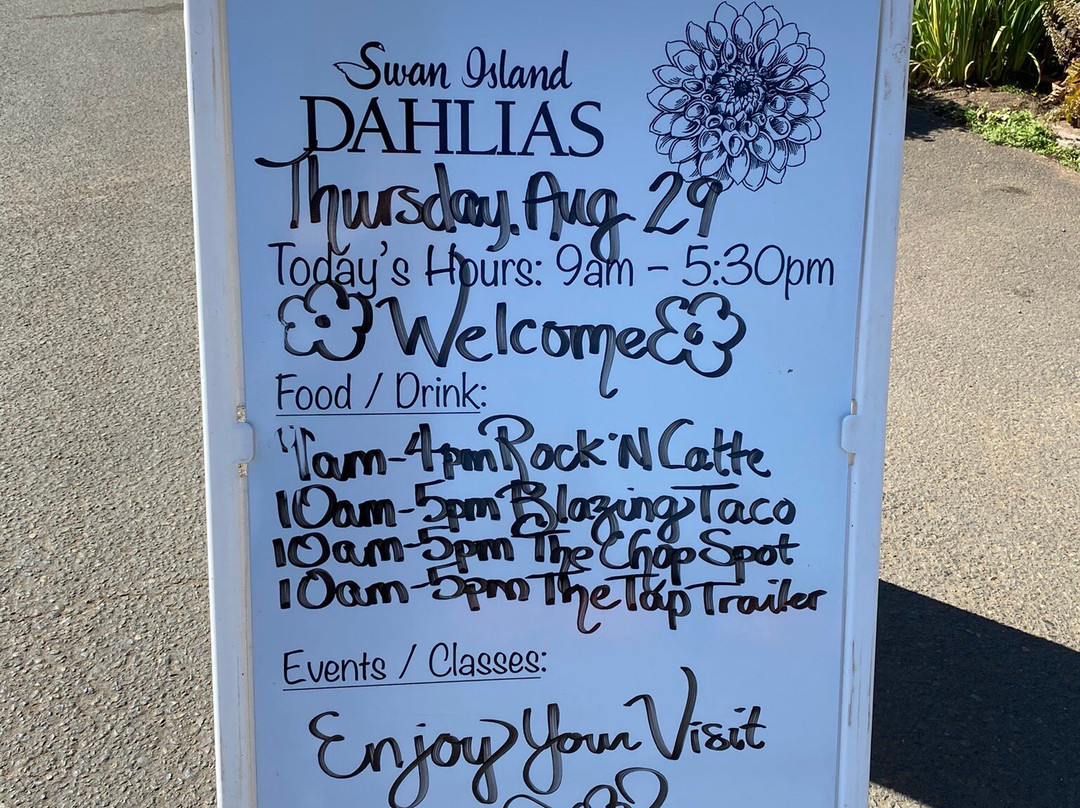 Swan Island
DAHLIAS
Thursday, Aug 29
Today's Hours: 9am - 5:30pm
Welcome
Food / Drink:
am-4pm Rock 'N Catte
10am-5pm Blazing Taco
10am-5pm The Chop Spot
10am-5pm The Tap Trailer
Events / Classes:
Enjoy Your Visit